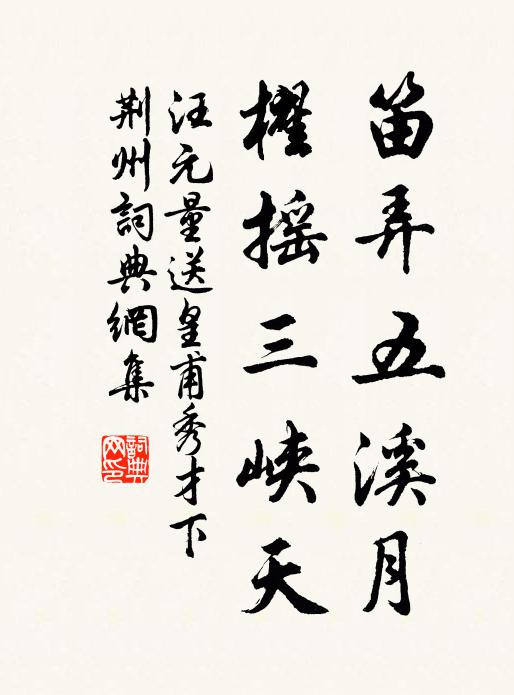 笛弄五溪月
櫂摇三峡天
汪元量送皇甫秀才下
荆州詞典網集
詞典
网印